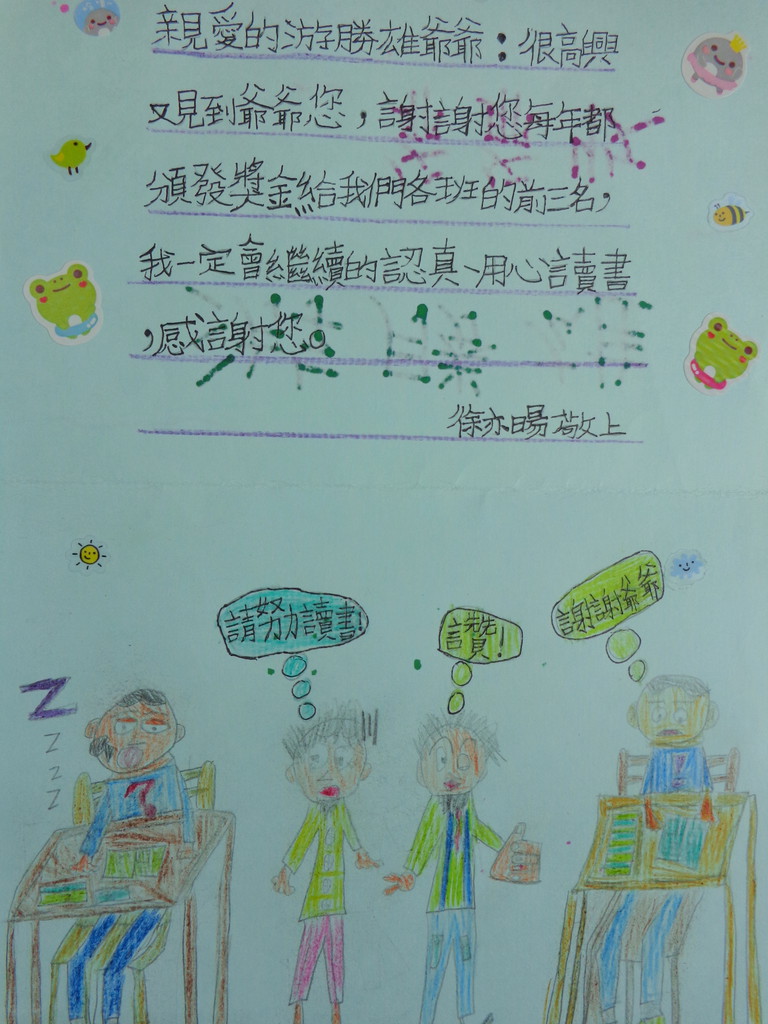 親愛的游勝雄爺爺：很高興
又見到爺爺您，謝謝您每年都
頒發獎金給我們各班的前三名，
我一定會繼續的認真、用心讀書
，感謝您。
徐亦暘敬上
請努力讀書!
讚!
謝謝爺爺
Z
Z
Z
Z